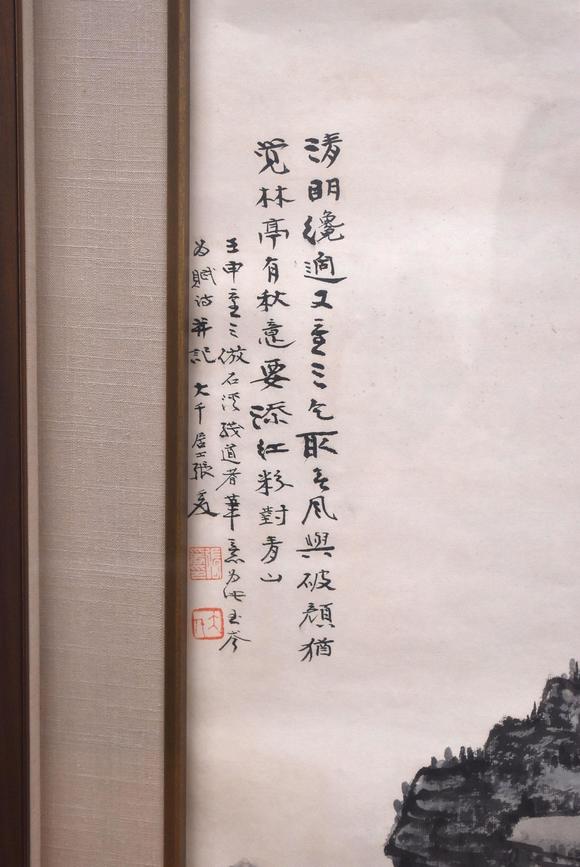 清明纔過又重三乞取春風與破顏猶
覺林亭有秋意要添紅粉對青山
壬申重三倣石溪殘道者筆意為此玉岑
為賦詩并記 大千居士張爰